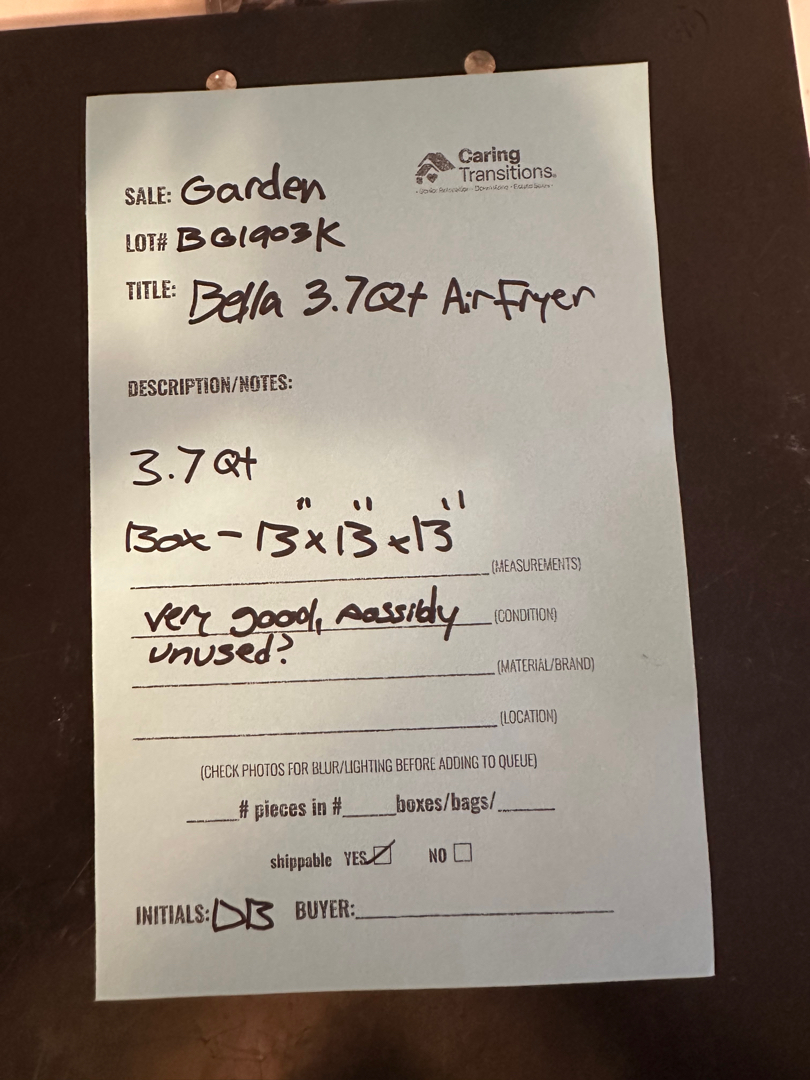 Caring
Transitions®
• Senior Relocation • Downsizing • Estate Sales •
SALE: Garden
LOT# BG1903K
TITLE: Bella 3.7Qt Air Fryer
DESCRIPTION/NOTES:
3.7 Qt
Box - 13" x 13" x 13"
(MEASUREMENTS)
very good, possibly (CONDITION)
unused?
(MATERIAL/BRAND)
(LOCATION)
(CHECK PHOTOS FOR BLUR/LIGHTING BEFORE ADDING TO QUEUE)
_____# pieces in #_____boxes/bags/_____
shippable YES ☑ NO ☐
INITIALS: DB BUYER: